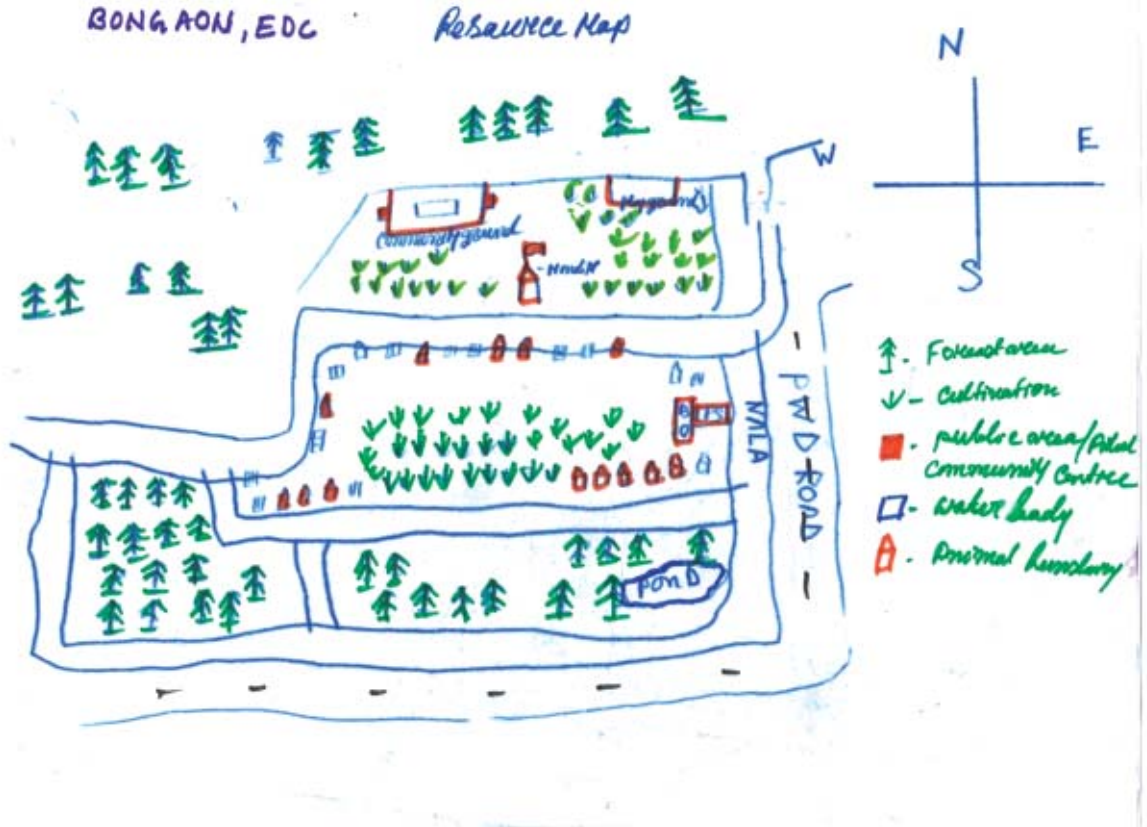 BONGAON, EDC
Resource Map
N
W
E
S
Playground
Community ground
Mandir
NALA
PWD ROAD
POND
- Forest area
- Cultivation
- public area/
community centre
- water body
- Animal husbandry